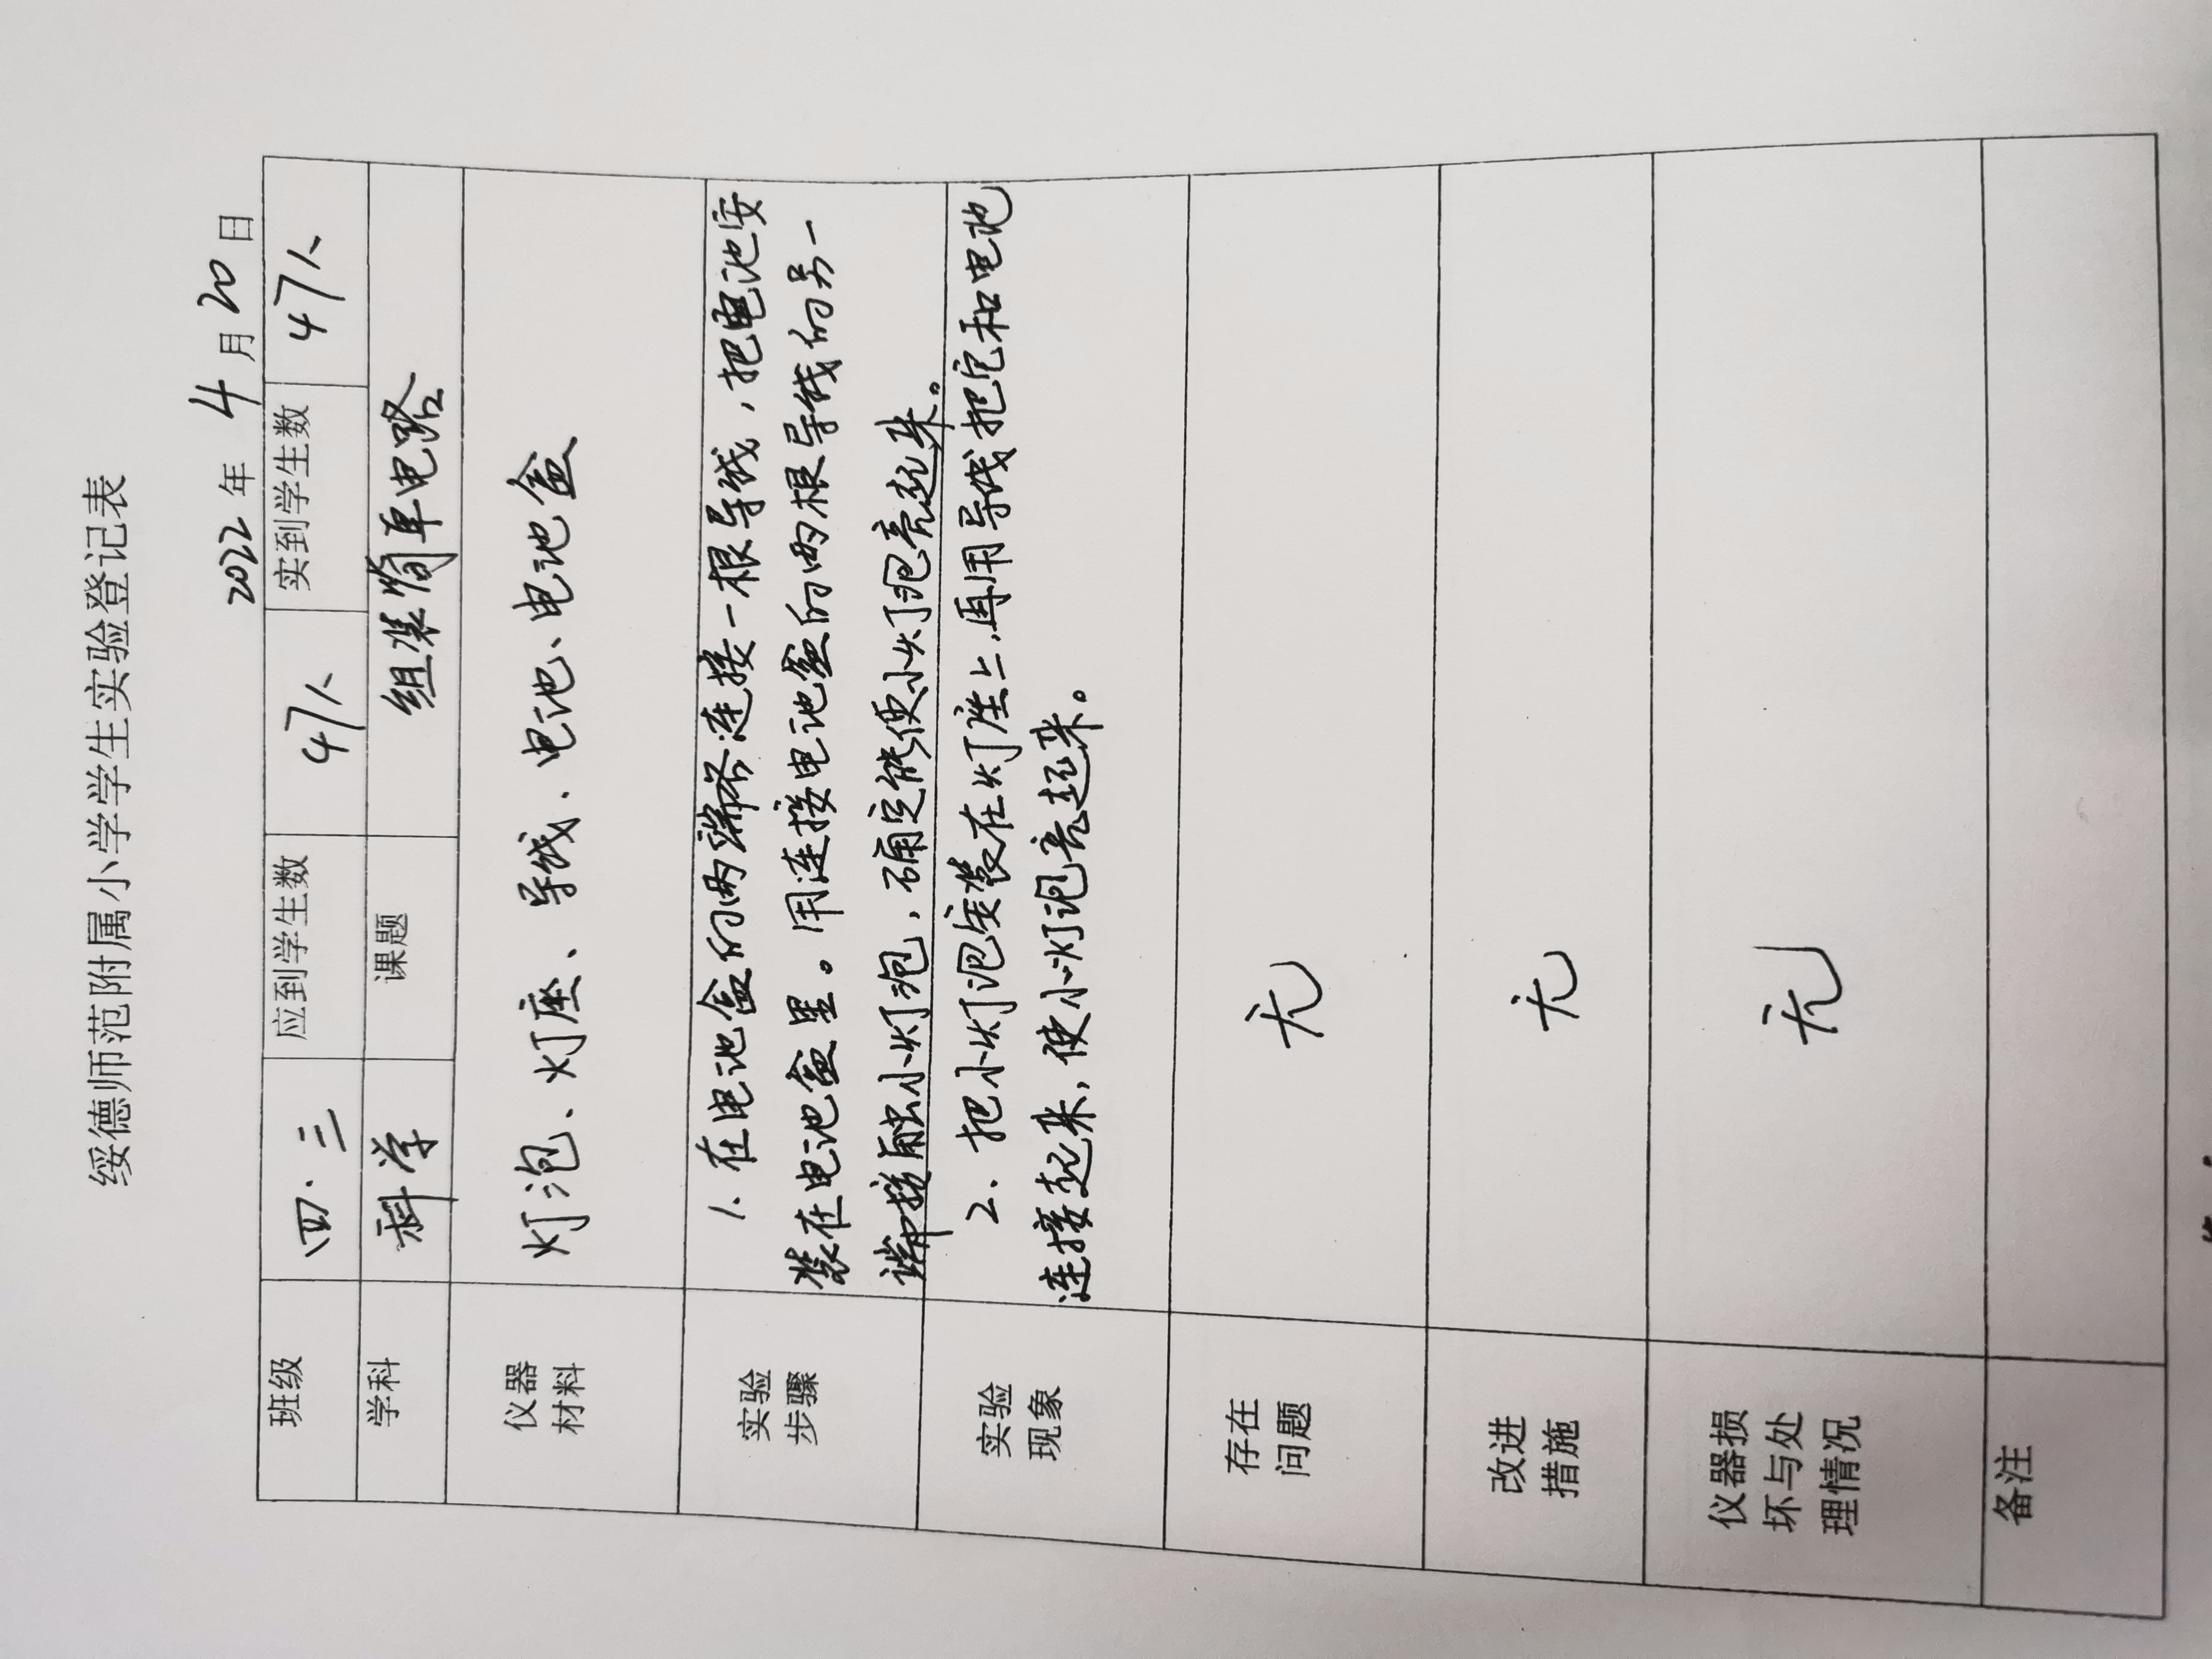 绥德师范附属小学学生实验登记表
2022年 4月20日
班级 四.三 应到学生数 47人 实到学生数 47人
学科 科学 课题 组装简单电路
仪器
材料
灯泡、灯座、导线、电池、电池盒
实验
步骤
1.在电池盒的两端各连接一根导线，把电池安
装在电池盒里。用连接电池盒的两根导线的另一
端接触小灯泡，确定能使小灯泡亮起来。
实验
现象
2、把小灯泡安装在灯座上,再用导线把它和电池
连接起来，使小灯泡亮起来。
存在
问题
无
改进
措施
无
仪器损
坏与处
理情况
无
备注